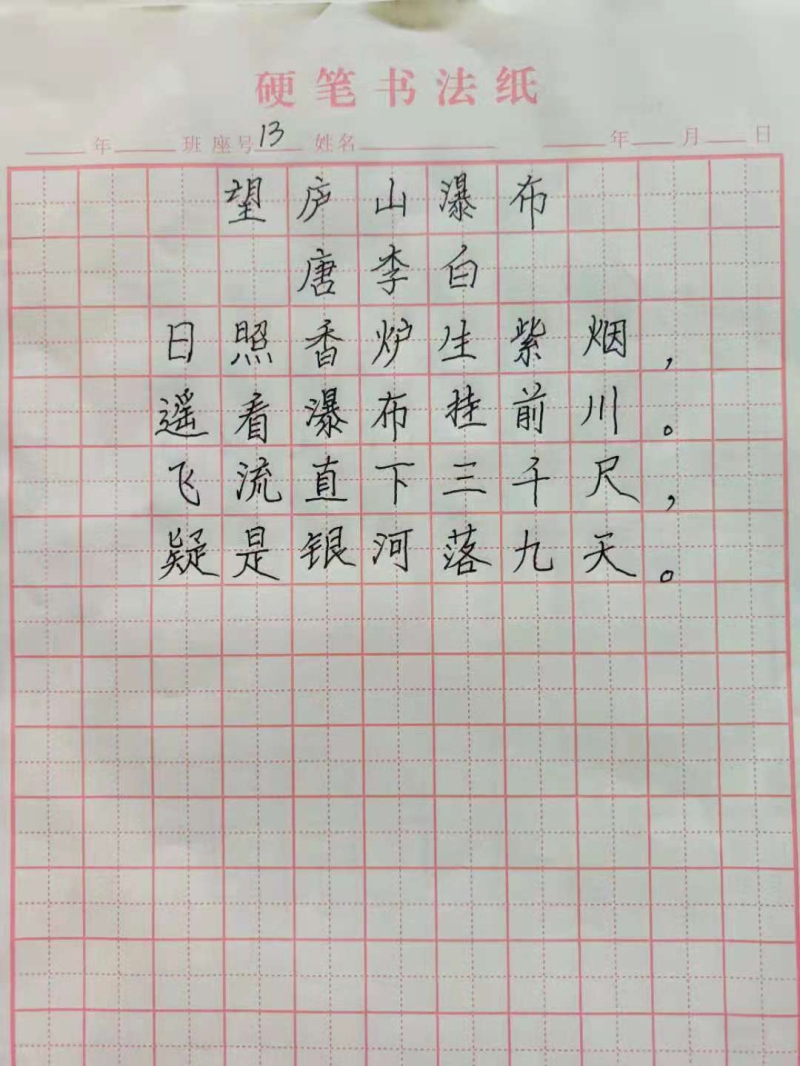 硬笔书法纸
年 班 座号 13 姓名 年 月 日
望庐山瀑布
唐李白
日照香炉生紫烟，
遥看瀑布挂前川。
飞流直下三千尺，
疑是银河落九天。